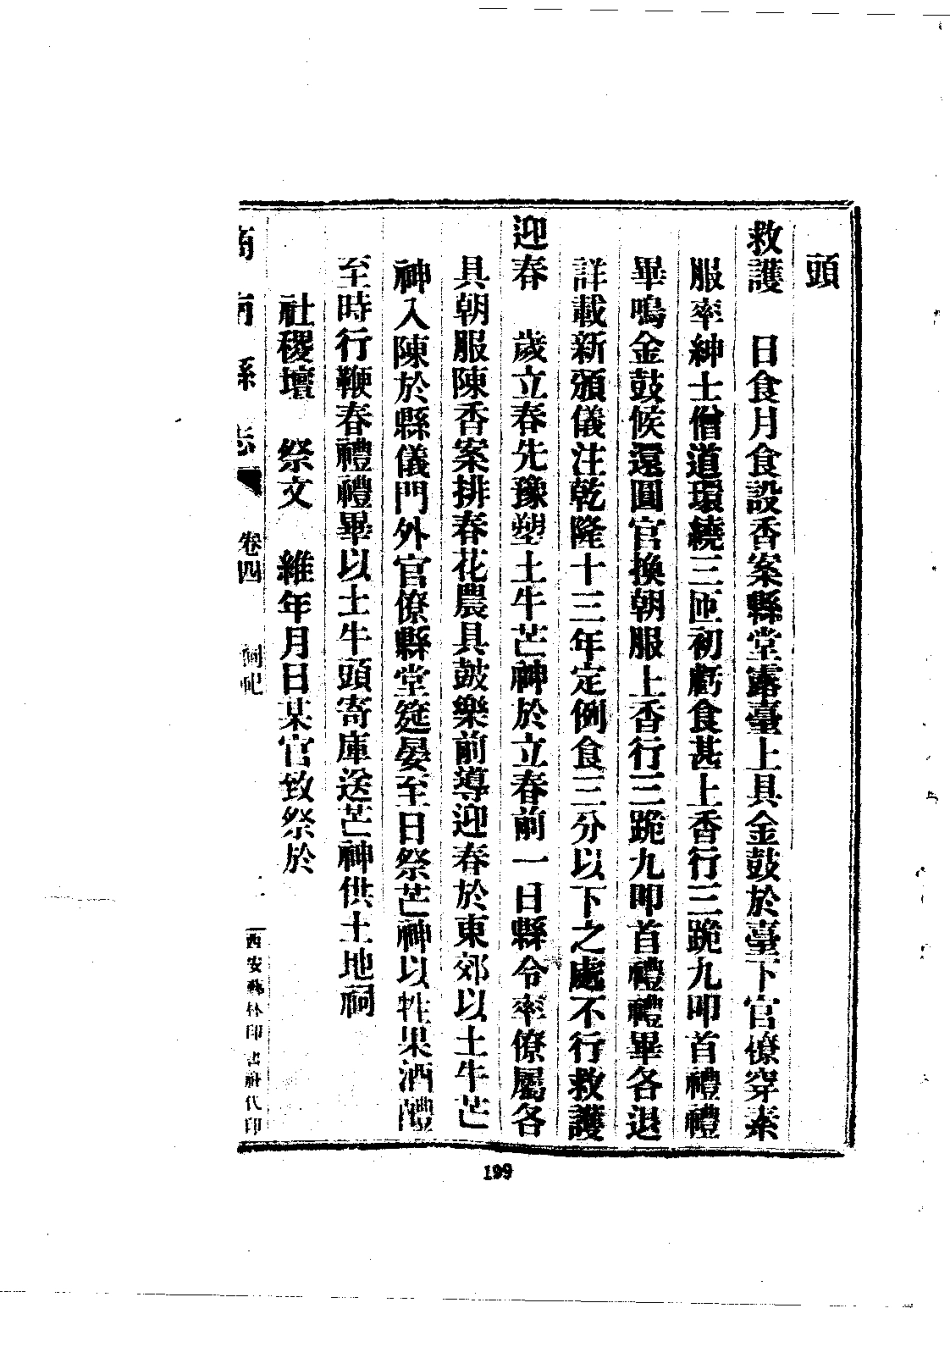 頭
救護　日食月食設香案縣堂露臺上具金鼓於臺下官僚穿素
服率紳士僧道環繞三匝初虧食甚上香行三跪九叩首禮禮
畢鳴金鼓候還圓官換朝服上香行三跪九叩首禮禮畢各退
詳載新頒儀注乾隆十三年定例食三分以下之處不行救護
迎春　歲立春先豫塑土牛芒神於立春前一日縣令率僚屬各
具朝服陳香案排春花農具鼓樂前導迎春於東郊以土牛芒
神入陳於縣儀門外官僚縣堂筵晏至日祭芒神以牲果酒醴
至時行鞭春禮禮畢以土牛頭寄庫送芒神供土地祠
社稷壇　祭文　維年月日某官致祭於
商南縣志　卷四　祠祀　西安藝林印書社代印
199